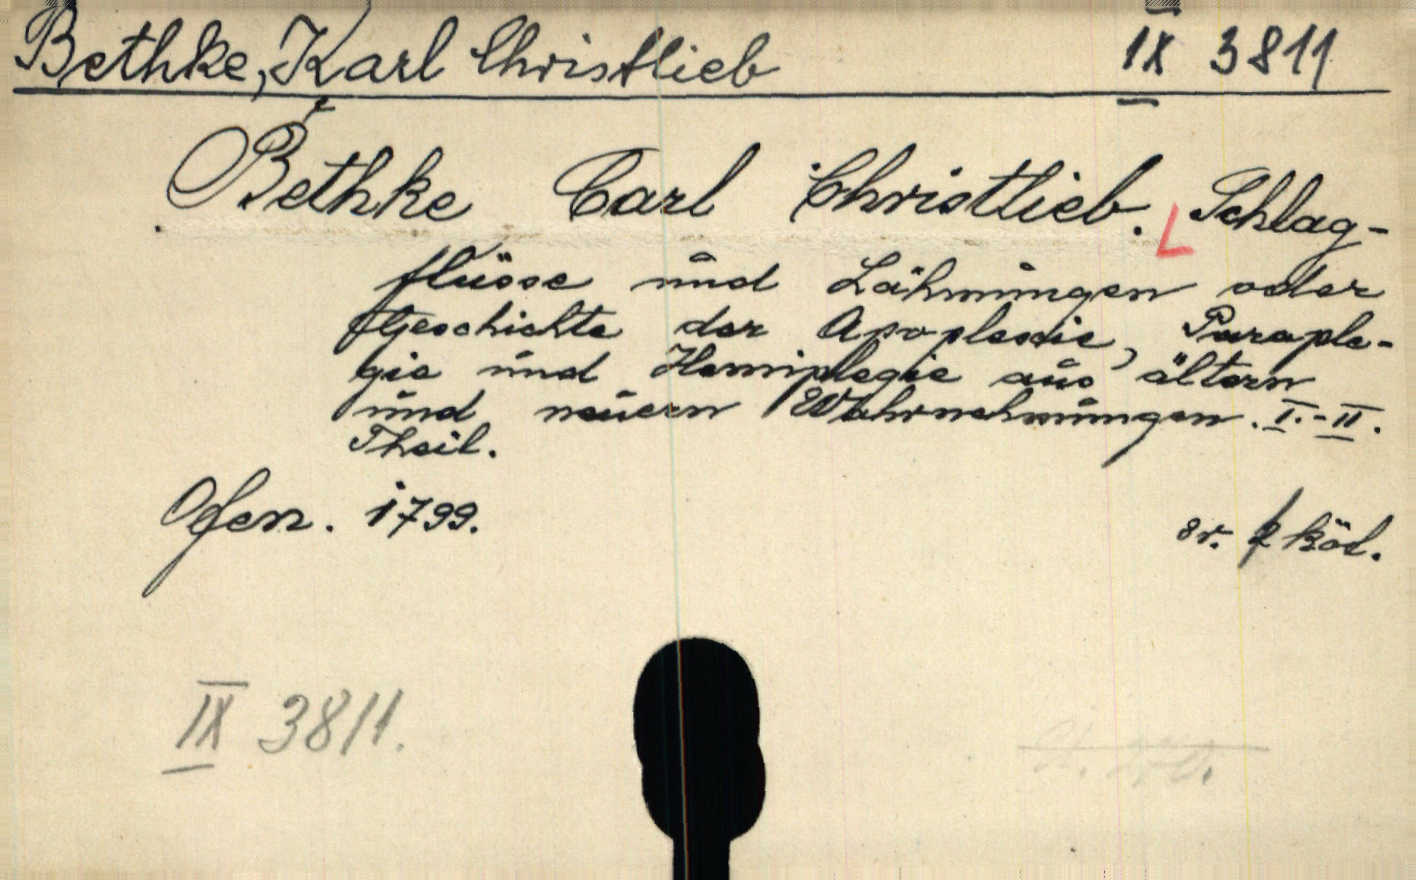 Bethke, Karl Christlieb IX 3811
Bethke Carl Christlieb. Schlag-
flüsse und Lähmungen oder
Geschichte der Apoplexie, Paraple-
gie und Hemiplegie aus ältern
und neuern Wahrnehmungen. I.-II.
Theil.
Ofen. 1799.
8r. 2 köt.
IX 3811.